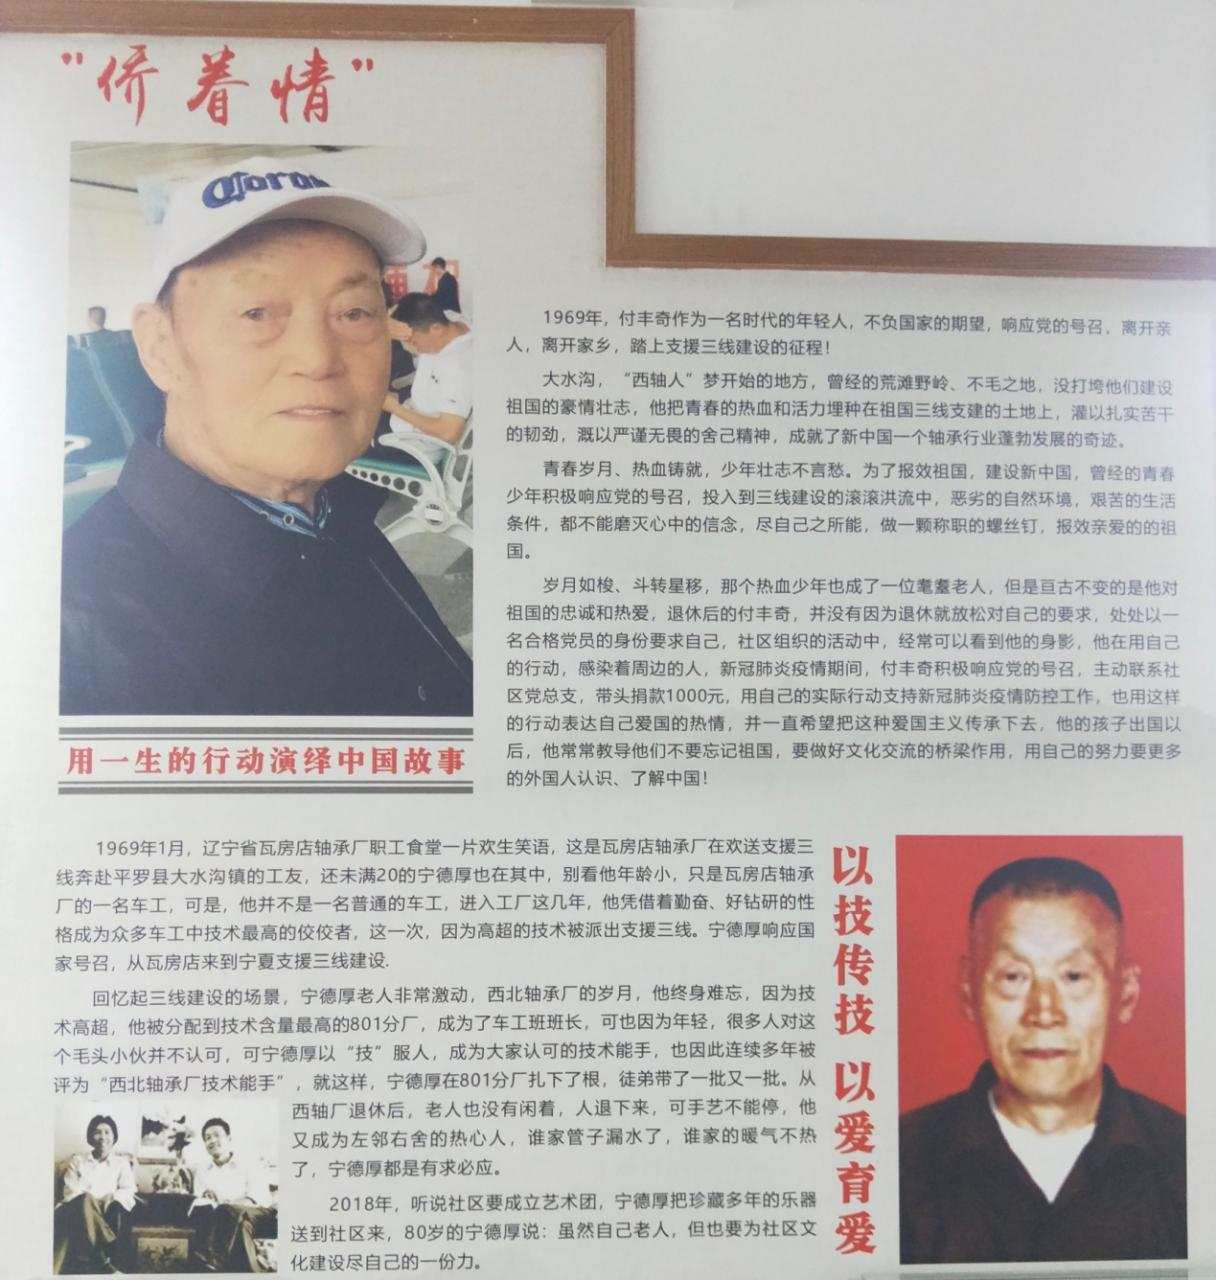 “侨着情”
Corona
1969年，付丰奇作为一名时代的年轻人，不负国家的期望，响应党的号召，离开亲
人，离开家乡，踏上支援三线建设的征程！
大水沟，“西轴人”梦开始的地方，曾经的荒滩野岭、不毛之地，没打垮他们建设
祖国的豪情壮志，他把青春的热血和活力埋种在祖国三线支建的土地上，灌以扎实苦干
的韧劲，溉以严谨无畏的舍己精神，成就了新中国一个轴承行业蓬勃发展的奇迹。
青春岁月、热血铸就，少年壮志不言愁。为了报效祖国，建设新中国，曾经的青春
少年积极响应党的号召，投入到三线建设的滚滚洪流中，恶劣的自然环境，艰苦的生活
条件，都不能磨灭心中的信念，尽自己之所能，做一颗称职的螺丝钉，报效亲爱的的祖
国。
岁月如梭、斗转星移，那个热血少年也成了一位耄耋老人，但是亘古不变的是他对
祖国的忠诚和热爱，退休后的付丰奇，并没有因为退休就放松对自己的要求，处处以一
名合格党员的身份要求自己，社区组织的活动中，经常可以看到他的身影，他在用自己
的行动，感染着周边的人，新冠肺炎疫情期间，付丰奇积极响应党的号召，主动联系社
区党总支，带头捐款1000元，用自己的实际行动支持新冠肺炎疫情防控工作，也用这样
的行动表达自己爱国的热情，并一直希望把这种爱国主义传承下去，他的孩子出国以
后，他常常教导他们不要忘记祖国，要做好文化交流的桥梁作用，用自己的努力要更多
的外国人认识、了解中国！
用一生的行动演绎中国故事
1969年1月，辽宁省瓦房店轴承厂职工食堂一片欢生笑语，这是瓦房店轴承厂在欢送支援三
线奔赴平罗县大水沟镇的工友，还未满20的宁德厚也在其中，别看他年龄小，只是瓦房店轴承
厂的一名车工，可是，他并不是一名普通的车工，进入工厂这几年，他凭借着勤奋、好钻研的性
格成为众多车工中技术最高的佼佼者，这一次，因为高超的技术被派出支援三线。宁德厚响应国
家号召，从瓦房店来到宁夏支援三线建设.
回忆起三线建设的场景，宁德厚老人非常激动，西北轴承厂的岁月，他终身难忘，因为技
术高超，他被分配到技术含量最高的801分厂，成为了车工班班长，可也因为年轻，很多人对这
个毛头小伙并不认可，可宁德厚以“技”服人，成为大家认可的技术能手，也因此连续多年被
评为“西北轴承厂技术能手”，就这样，宁德厚在801分厂扎下了根，徒弟带了一批又一批。从
西轴厂退休后，老人也没有闲着，人退下来，可手艺不能停，他
又成为左邻右舍的热心人，谁家管子漏水了，谁家的暖气不热
了，宁德厚都是有求必应。
2018年，听说社区要成立艺术团，宁德厚把珍藏多年的乐器
送到社区来，80岁的宁德厚说：虽然自己老人，但也要为社区文
化建设尽自己的一份力。
以技传技 以爱育爱